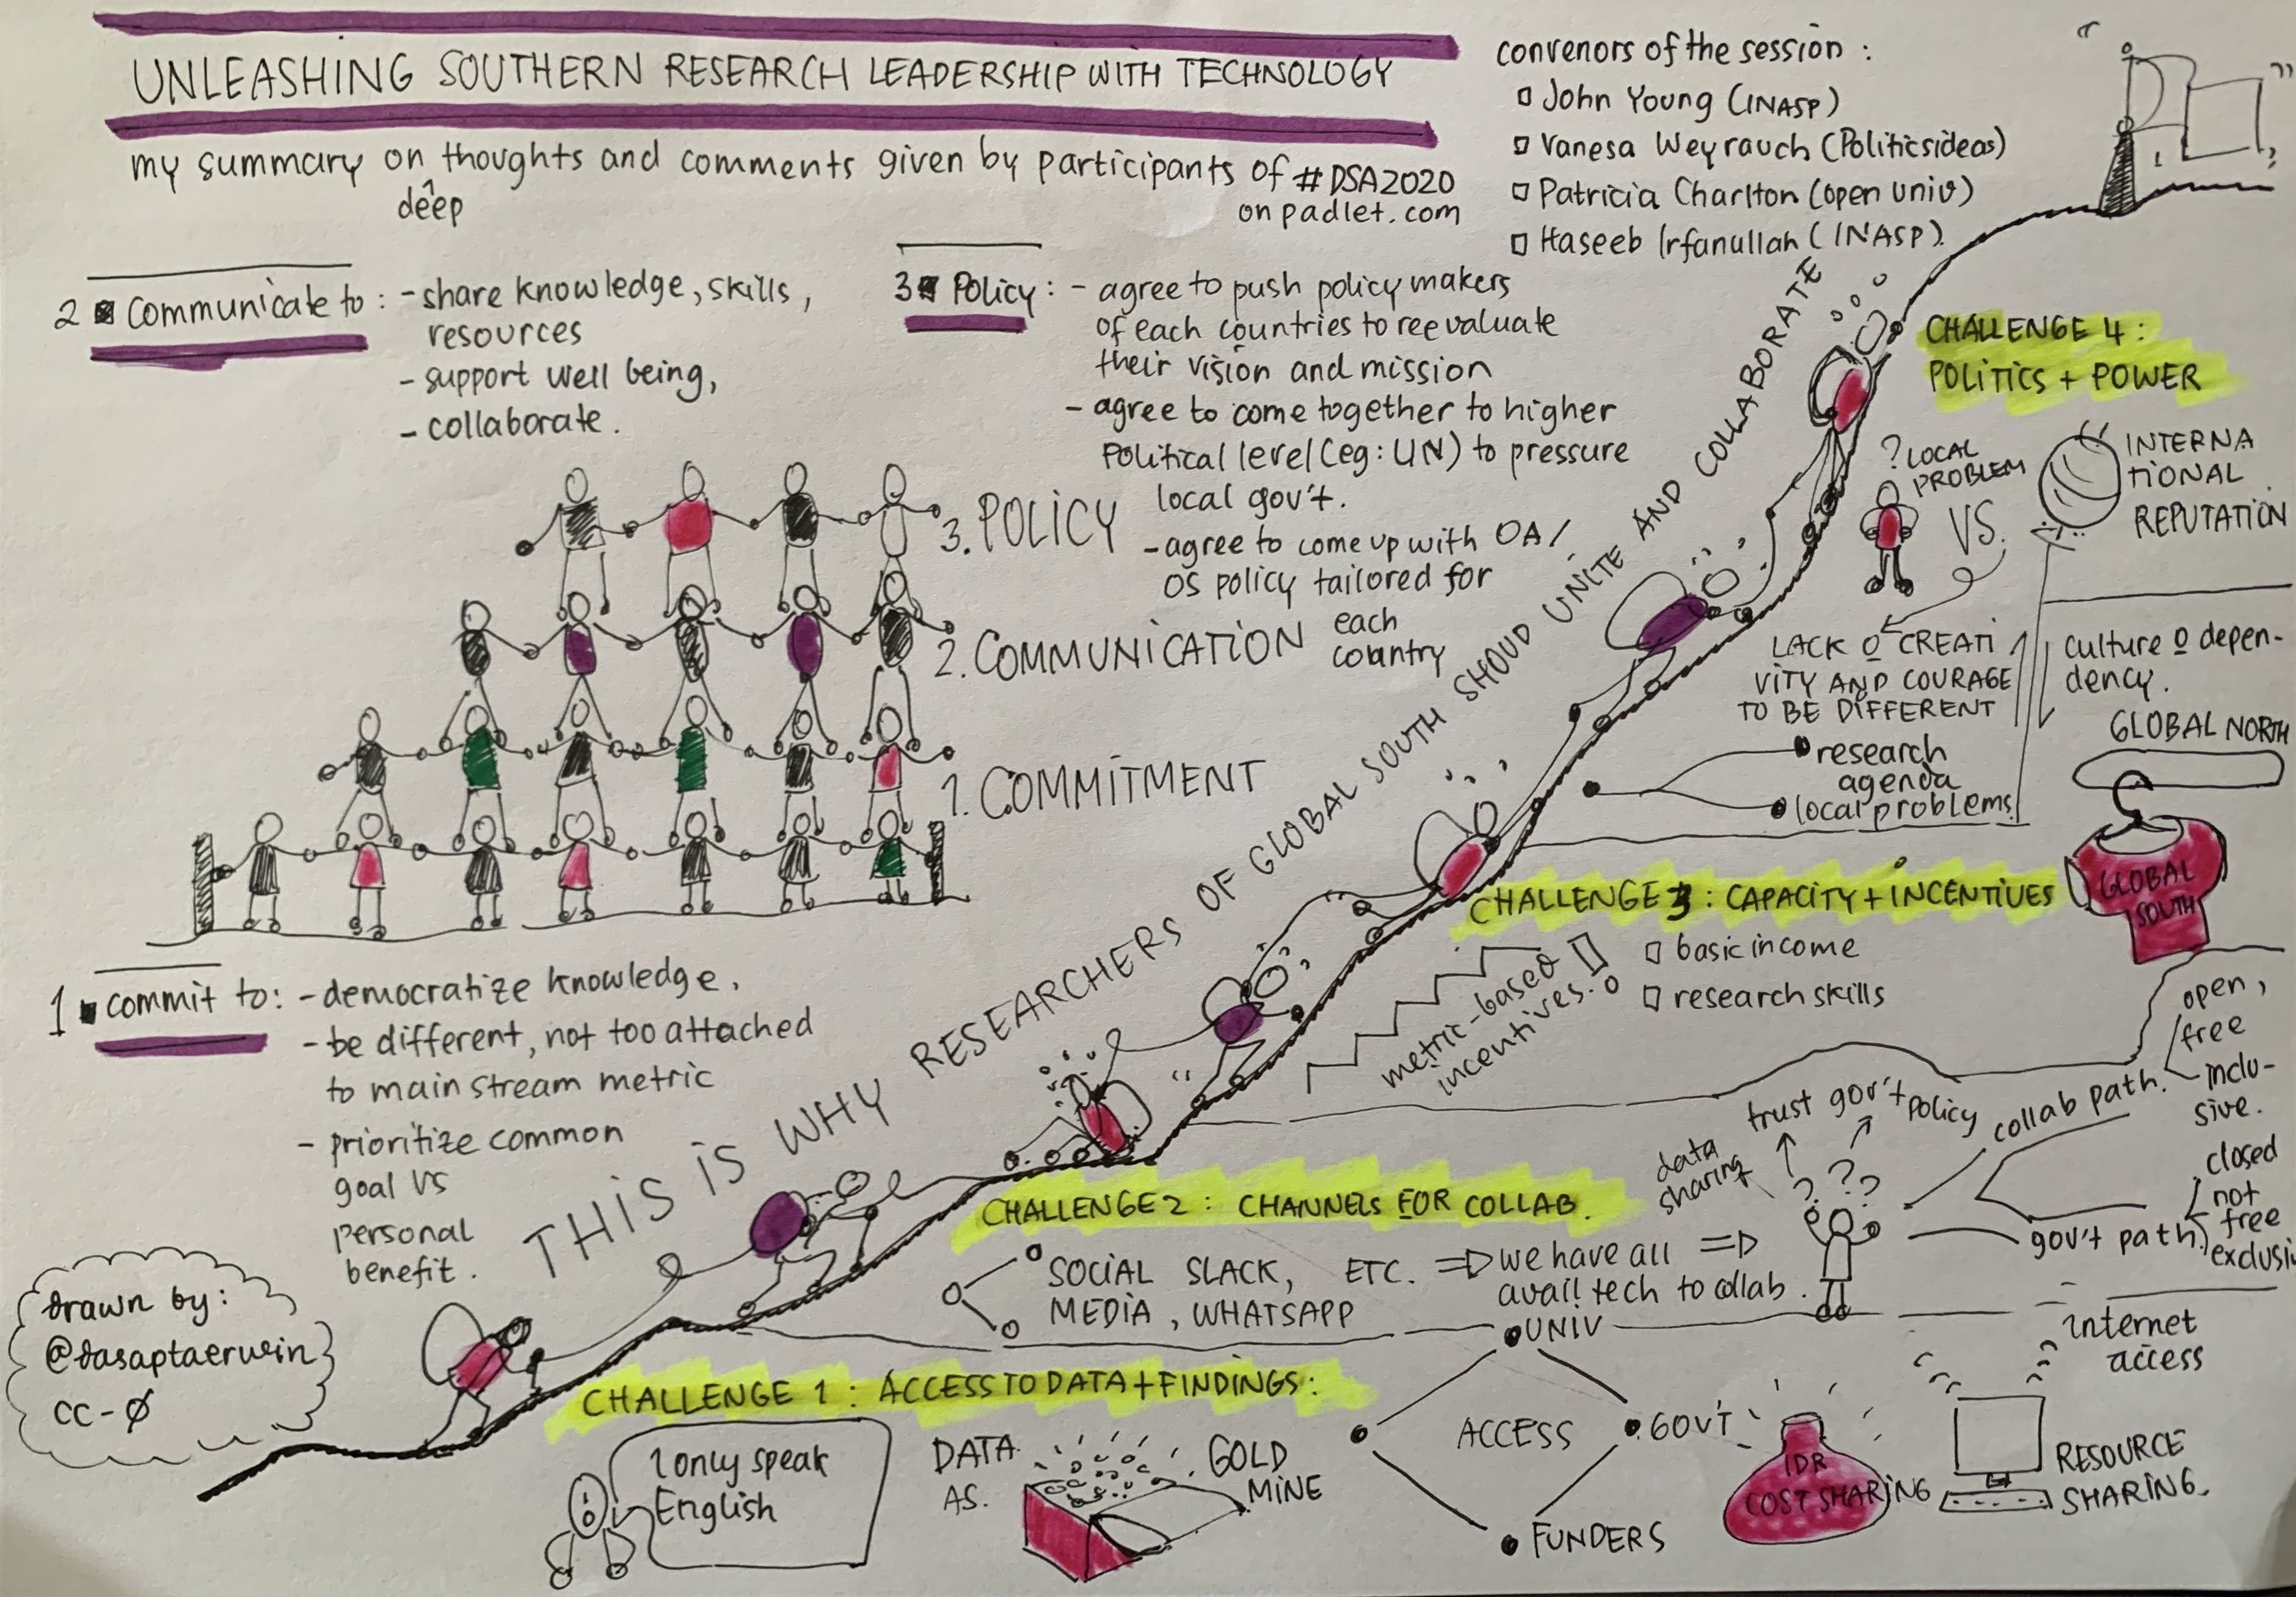 UNLEASHING SOUTHERN RESEARCH LEADERSHIP WITH TECHNOLOGY
my summary on thoughts and comments given by participants of #DSA2020
deep
on padlet.com
convenors of the session :
John Young (INASP)
Vanesa Weyrauch (Politicsideas)
Patricia Charlton (open univ)
Haseeb Irfanullah (INASP)
2 Communicate to : - share knowledge, skills,
resources
- support well being,
- collaborate.
3 Policy : - agree to push policy makers
of each countries to reevaluate
their vision and mission
- agree to come together to higher
Political level (eg: UN) to pressure
local gov't.
- agree to come up with OA/
OS policy tailored for
each
country
3. POLICY
2. COMMUNICATION
1. COMMITMENT
1 commit to: - democratize knowledge.
- be different, not too attached
to main stream metric
- prioritize common
goal vs
personal
benefit.
THIS IS WHY RESEARCHERS OF GLOBAL SOUTH SHOUD UNITE AND COLLABORATE
CHALLENGE 4 :
POLITICS + POWER
? LOCAL
PROBLEM
VS.
INTERNA
TIONAL
REPUTATION
LACK O CREATI
VITY AND COURAGE
TO BE DIFFERENT
culture o depen-
dency.
research
agenda
local problems
GLOBAL NORTH
GLOBAL
SOUTH
CHALLENGE 3 : CAPACITY + INCENTIVES
metric-based
incentives.
basic income
research skills
CHALLENGE 2 : CHANNELS FOR COLLAB.
SOCIAL SLACK, ETC.
MEDIA, WHATSAPP
we have all
avail tech to collab.
data
sharing
trust gov't policy
???
collab path.
open,
free
inclu-
sive.
gov't path
closed
not
free
exclusi
CHALLENGE 1 : ACCESS TO DATA + FINDINGS :
I only speak
English
DATA
AS.
GOLD
MINE
UNIV
ACCESS
GOV'T
FUNDERS
IDR
COST SHARING
internet
access
RESOURCE
SHARING.
drawn by:
@dasaptaerwin
CC-0